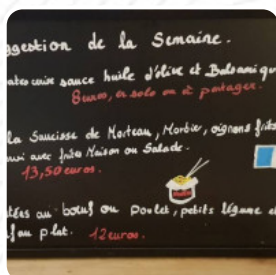 ggestion de la Semaine.
sauce huile d'olive et Balsamiqu
8euros, en solo ou à partager.
la Saucisse de Morteau, Morbier, oignons frits
avec frites Maison ou Salade.
13,50 euros.
au boeuf ou Poulet, petits légume e
au plat. 12euros.